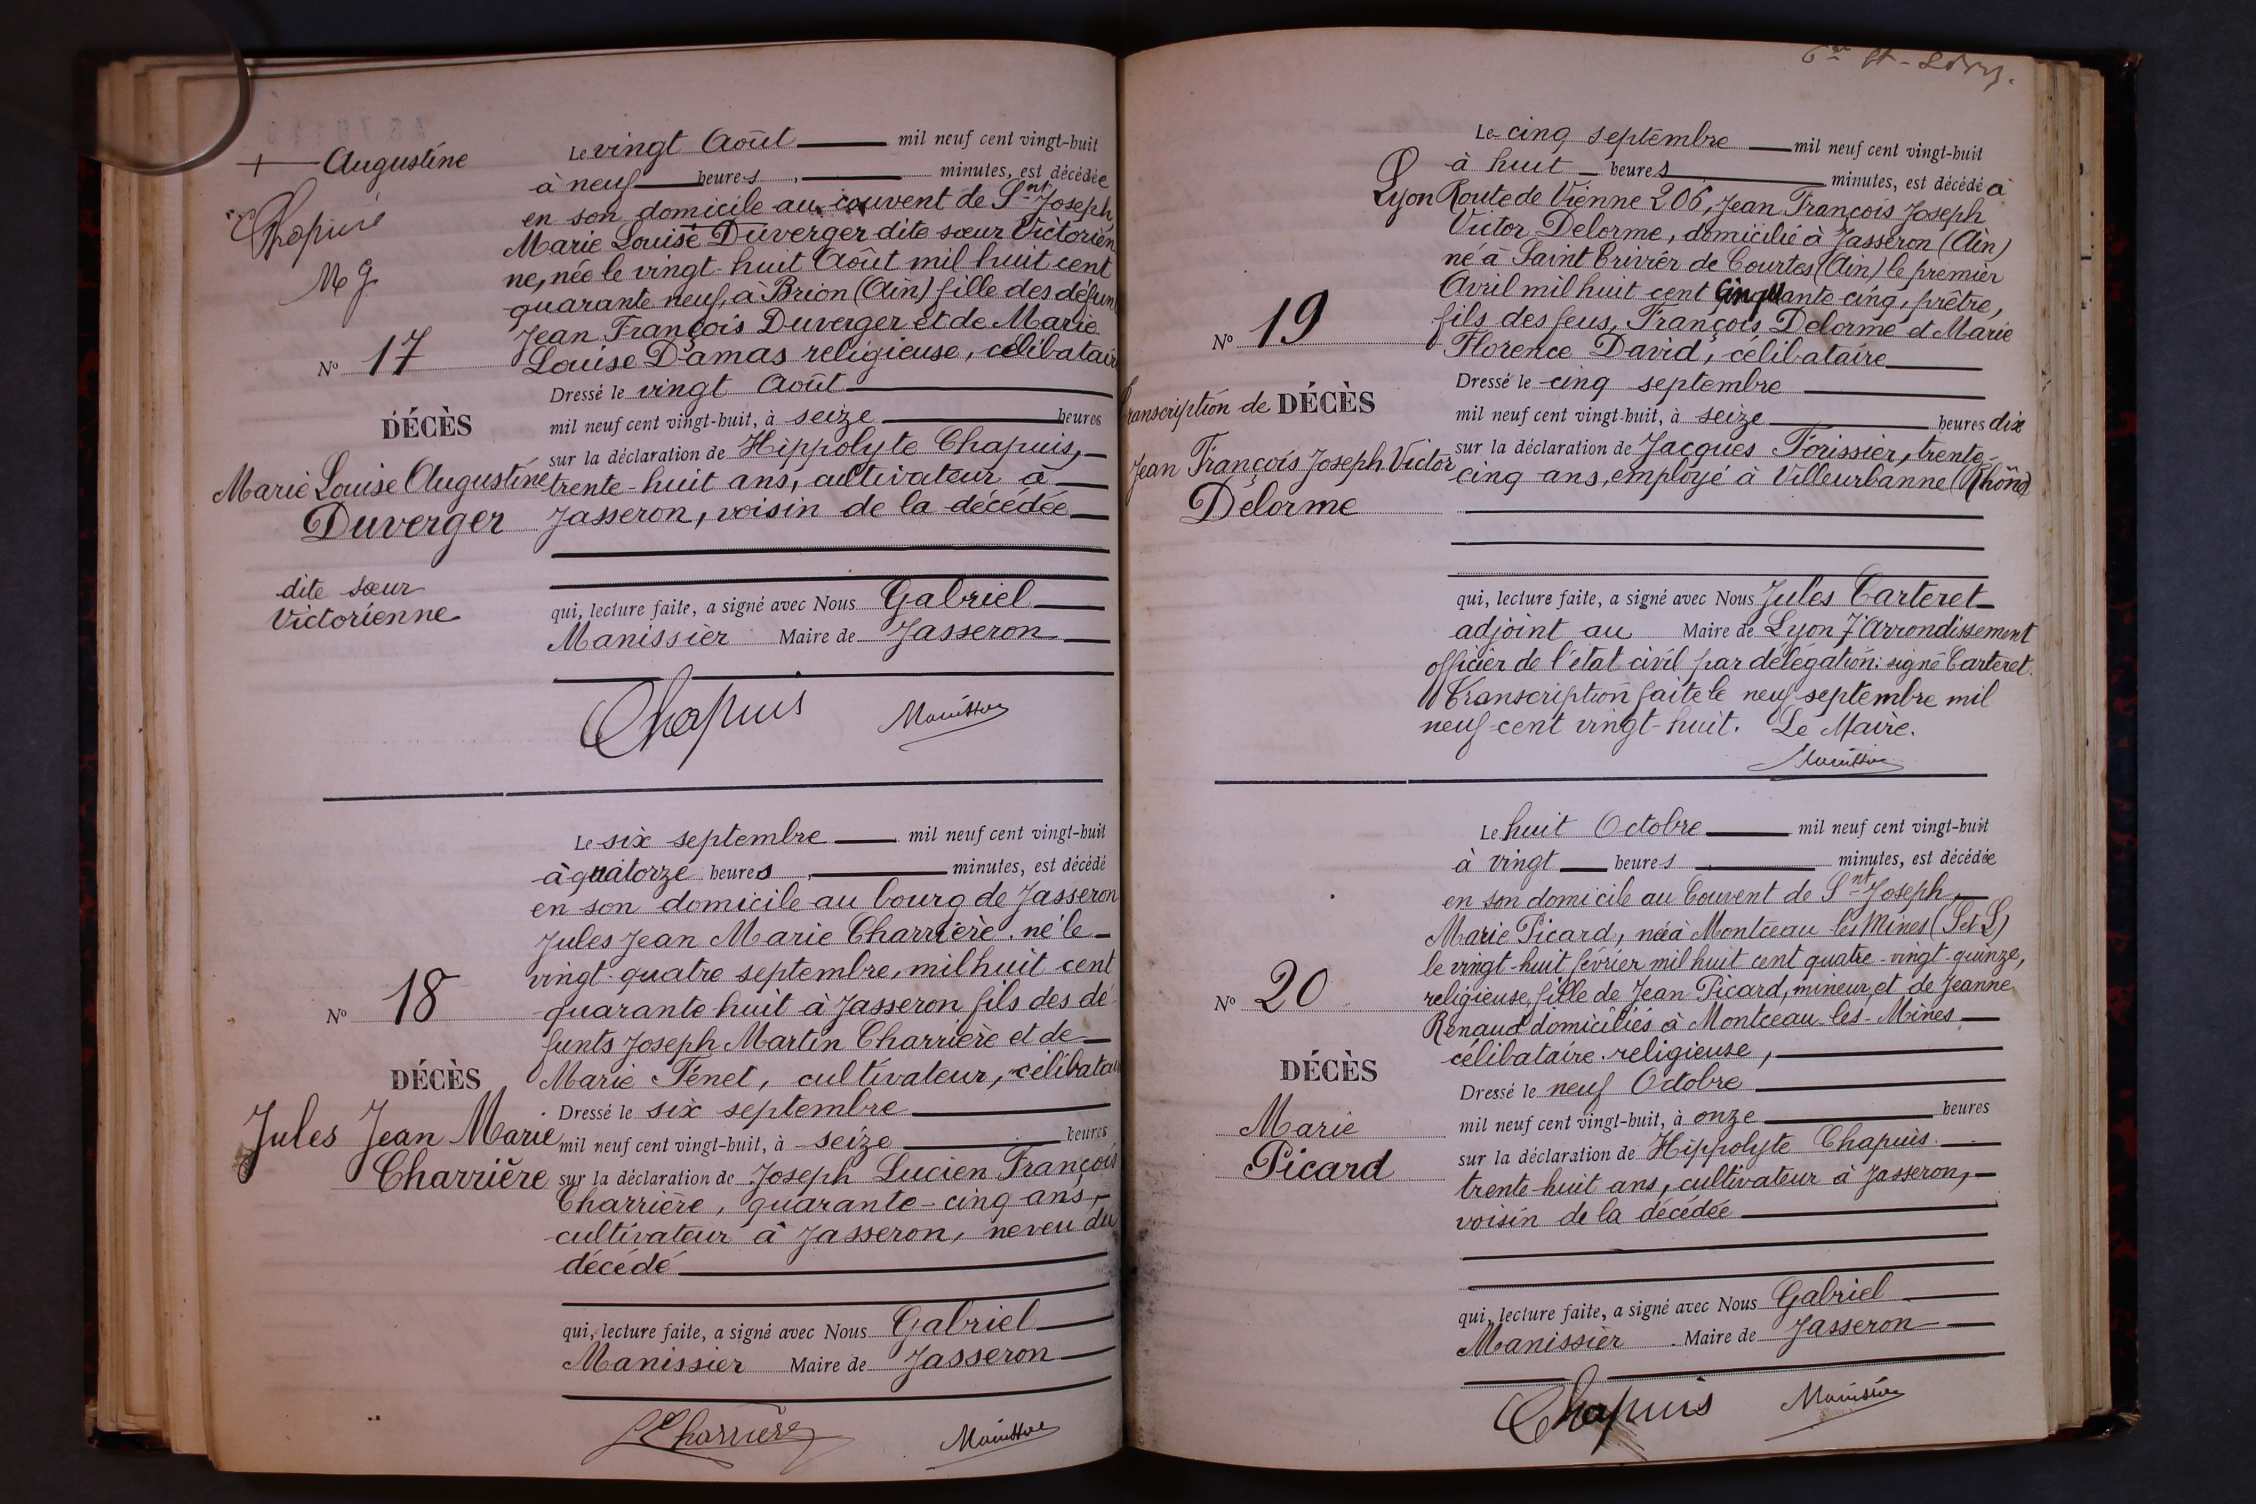 Augustine
Chapuis
M G
Le vingt Août mil neuf cent vingt-huit
à neuf heures, minutes, est décédée
en son domicile au couvent de Snt Joseph,
Marie Louise Duverger dite sœur Victorien
ne, née le vingt-huit Août mil huit cent
quarante neuf, à Brion (Ain) fille des défun
Jean François Duverger et de Marie
Louise Damas religieuse, célibatair
Dressé le vingt Août
mil neuf cent vingt-huit, à seize heures
sur la déclaration de Hippolyte Chapuis,
trente-huit ans, cultivateur à
Jasseron, voisin de la décédée
qui, lecture faite, a signé avec Nous Gabriel
Manissier Maire de Jasseron
Chapuis Manissier
No 17
DÉCÈS
Marie Louise Augustine
Duverger
dite sœur
Victorienne
Le six septembre mil neuf cent vingt-huit
à quatorze heures, minutes, est décédé
en son domicile au bourg de Jasseron
Jules Jean Marie Charrière, né le
vingt-quatre septembre, mil huit cent
quarante huit à Jasseron fils des dé
funts Joseph Martin Charrière et de
Marie Ténet, cultivateur, célibatai
Dressé le six septembre
mil neuf cent vingt-huit, à seize heures
sur la déclaration de Joseph Lucien François
Charrière, quarante-cinq ans,
cultivateur à Jasseron, neveu du
décédé
qui, lecture faite, a signé avec Nous Gabriel
Manissier Maire de Jasseron
Charrière Manissier
No 18
DÉCÈS
Jules Jean Marie
Charrière
Le cinq septembre mil neuf cent vingt-huit
à huit heures minutes, est décédé à
Lyon Route de Vienne 206, Jean François Joseph
Victor Delorme, domicilié à Jasseron (Ain)
né à Saint Trivier de Courtes (Ain) le premier
Avril mil huit cent cinquante cinq, prêtre,
fils des feus, François Delorme et Marie
Florence David, célibataire
Dressé le cinq septembre
mil neuf cent vingt-huit, à seize heures dix
sur la déclaration de Jacques Forissier, trente-
cinq ans, employé à Villeurbanne (Rhône)
qui, lecture faite, a signé avec Nous Jules Carteret
adjoint au Maire de Lyon 7e Arrondissement
officier de l'état civil par délégation: signé Carteret.
Transcription faite le neuf septembre mil
neuf-cent vingt-huit. Le Maire.
Manissier
No 19
Transcription de DÉCÈS
Jean François Joseph Victor
Delorme
Le huit Octobre mil neuf cent vingt-huit
à vingt heures minutes, est décédée
en son domicile au Couvent de Snt Joseph,
Marie Picard, née à Montceau les Mines (S et L)
le vingt-huit février mil huit cent quatre-vingt-quinze,
religieuse, fille de Jean Picard, mineur, et de Jeanne
Renaud domiciliés à Montceau-les-Mines
célibataire religieuse,
Dressé le neuf Octobre
mil neuf cent vingt-huit, à onze heures
sur la déclaration de Hippolyte Chapuis
trente-huit ans, cultivateur à Jasseron,
voisin de la décédée
qui, lecture faite, a signé avec Nous Gabriel
Manissier Maire de Jasseron
Chapuis Manissier
No 20
DÉCÈS
Marie
Picard